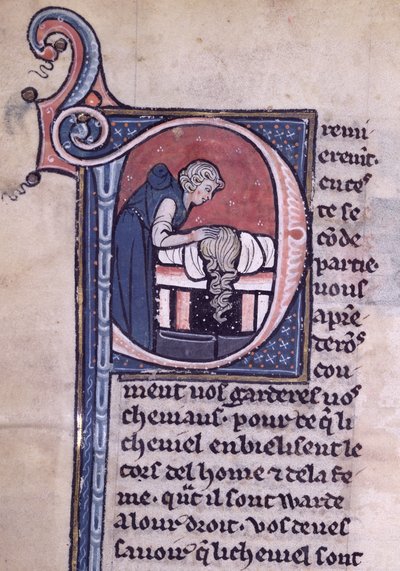 Premi
erem̅t.
en ces
te se
co̅de
partie.
uous
apre̅
deros
cou
ment uos garderes uos
cheuiaus. pour ce q̅ li
cheuiel enbielisent le
cors del home ⁊ de la fe
me. q̅nt il sont warde
a lour droit. Vos deues
sauoir q̅ li cheuiel sont